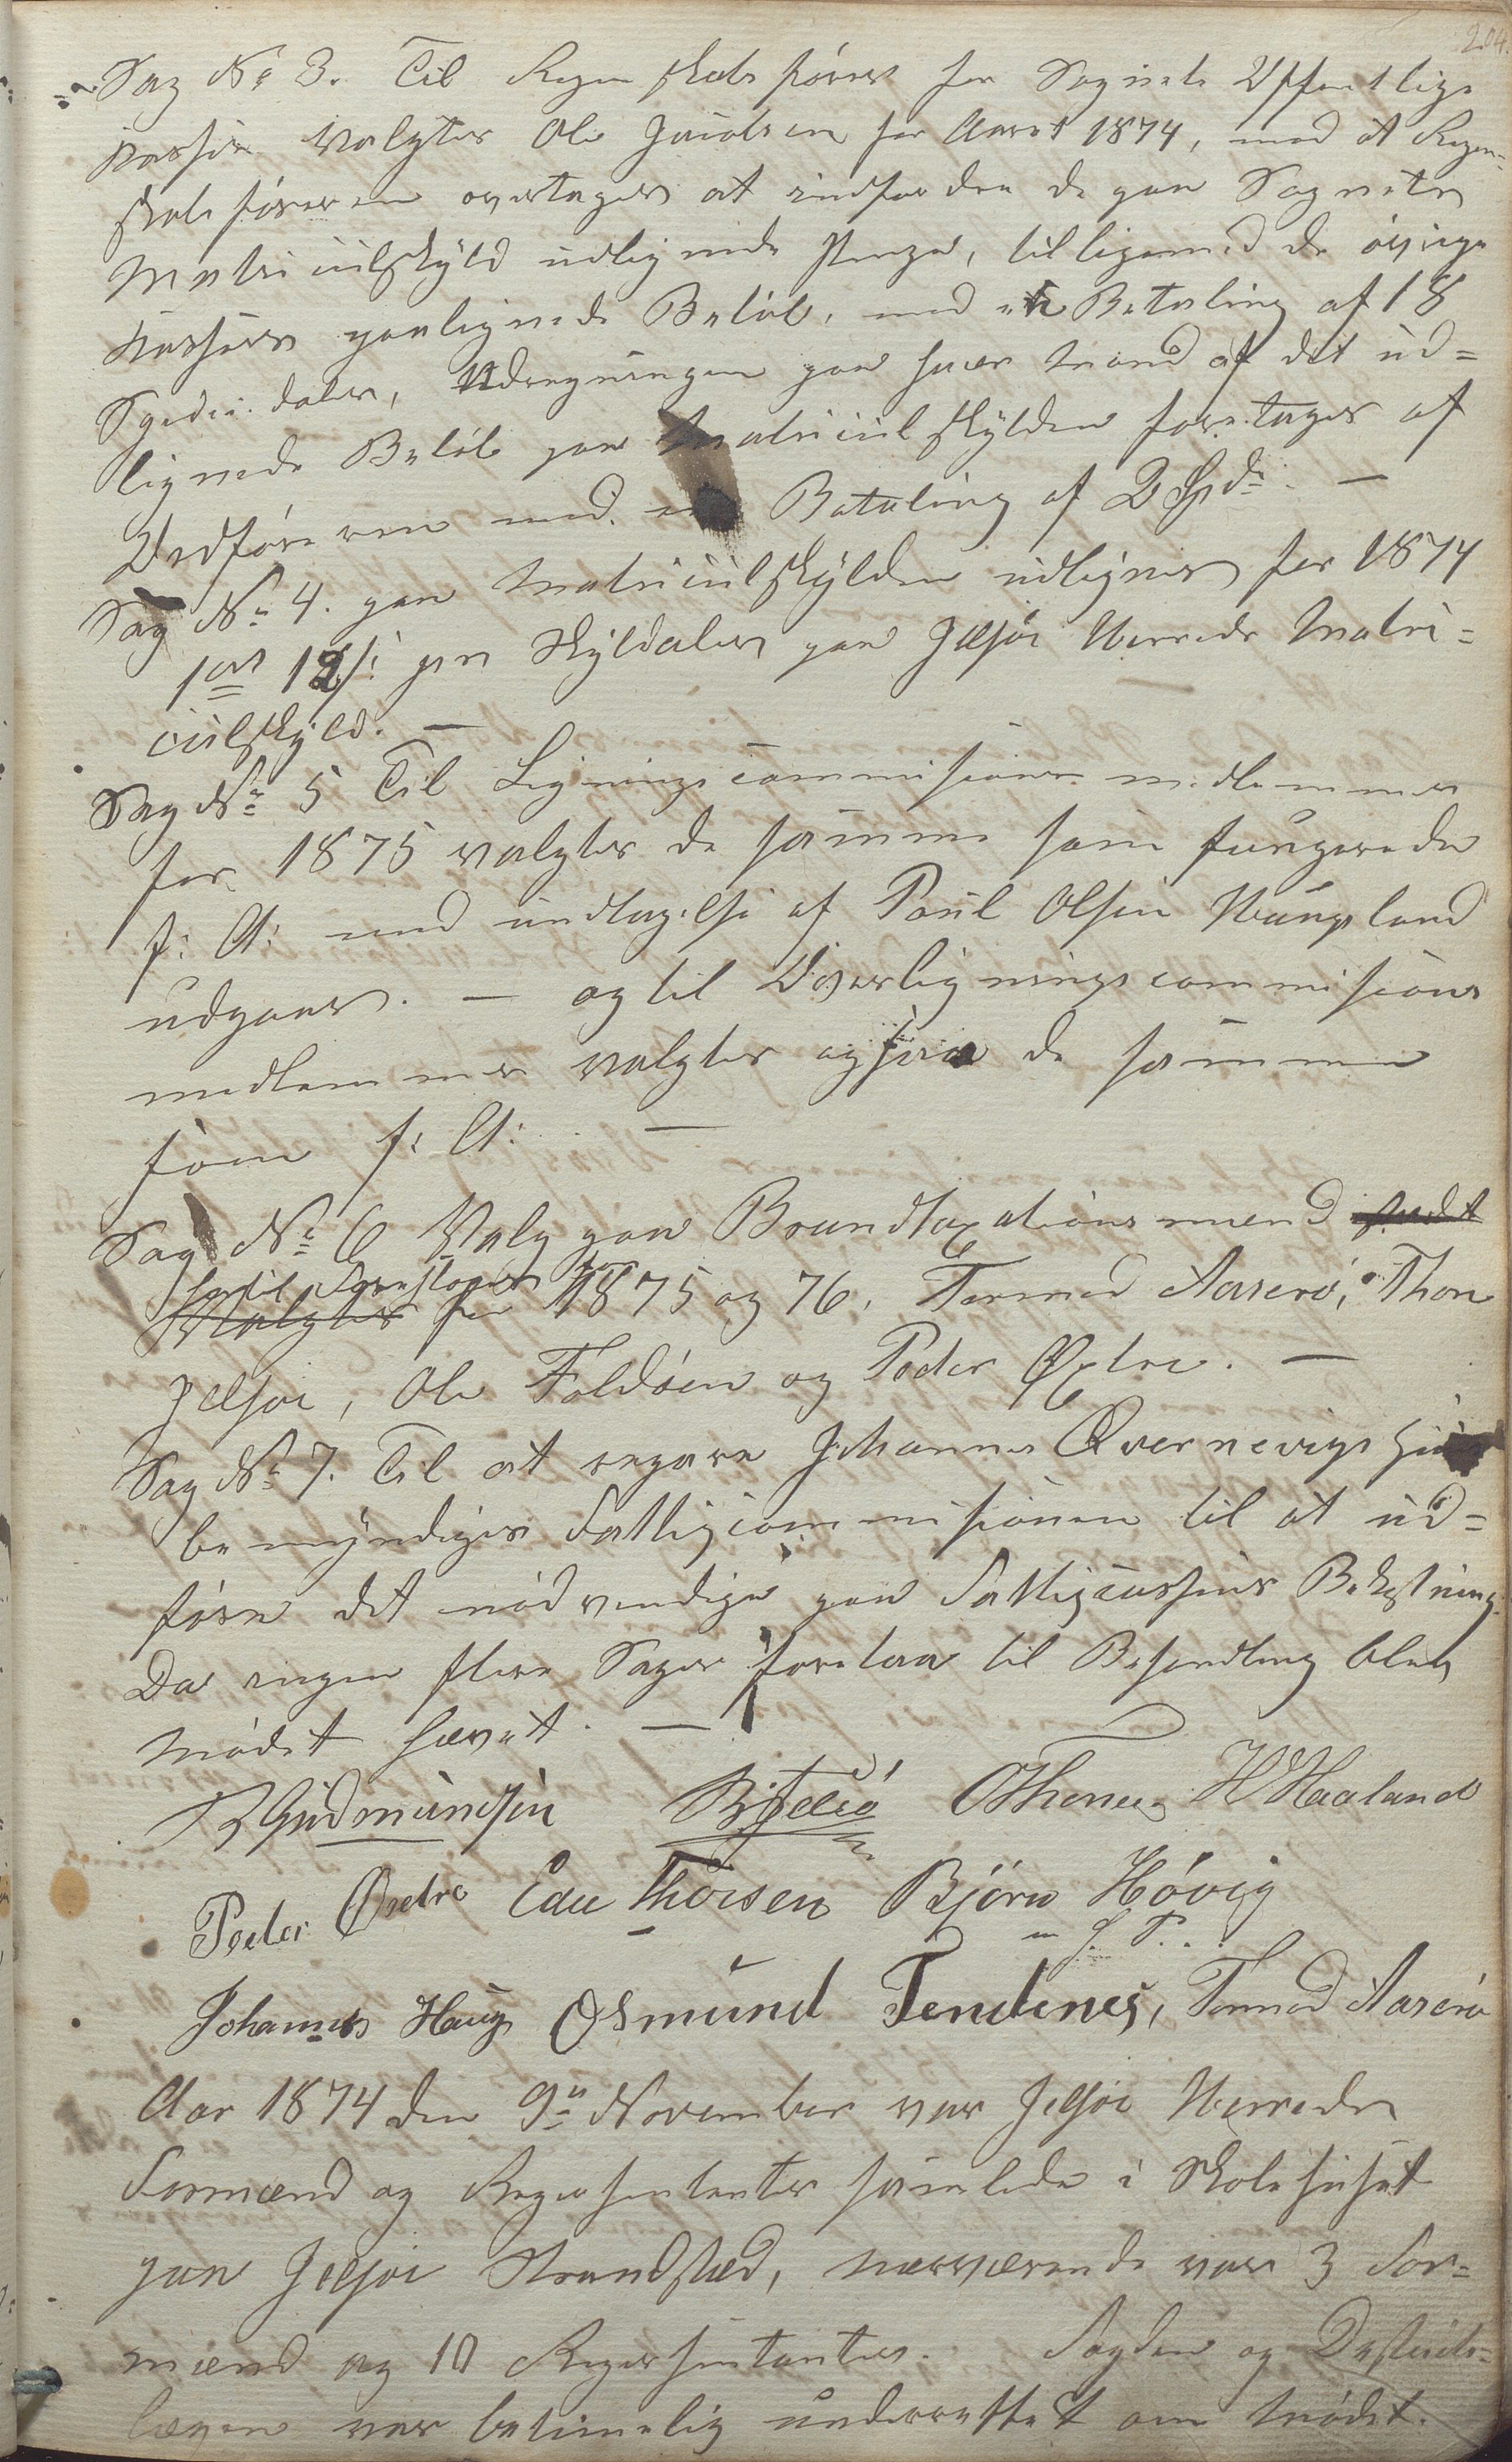 204.
Sag No 3. Til Regnskabsfører for Sognets Offentlige
Kasser valgtes Ole Jacobsen for Aaret 1874, med at Regn-
skabsføreren overtager at indfordre de paa Sognets
Matriculskyld udlignede Penge, tilligemed de øvrige
Kassers paalignede Beløb, med en Betaling af 18
Speciedaler, Udregningen paa hver Mand af det ud=
lignede Beløb paa Matriculskylden foretages af
Ordføreren med en Betaling af 2 Spd. —
Sag No 4. paa Matriculskylden udlignes for 1874
1ort 12 s: pr Skylddaler paa Jelsøe Herreds Matri=
culskyld. —
Sag No 5 Til Ligningscommisions medlemmer
for 1875 valgtes de samme som fungerede
f: A: med undtagelse af Poul Olsen Haugsland
udgaar. — og til Overligningscommisions
medlemmer valgtes ogsaa de samme
som f: A: —
Sag No 6 Valg paa Brandtaxationsmænd
hertil Foreslaaes
Valgtes for 1875 og 76, Tormod Aarerø, Thore
Jelsøe, Ole Foldøen og Peder Øxtre. —
Sag No 7. Til at repare Johannes Qvernevigs Huus
bemyndiges Fattigcommisionen til at ud=
føre det nødvendige paa Fattigcassens Bekostning.
Da ingen flere Sager forelaa til Behandling blev
Mødet hævet. —
B Gudmundsen BJelsø OThorsen H Haaland
Peder Øxtre Edu Thorsen Bjørn Høvig
m. f. P.
Johannes Haug Osmund Tendenes, Tormod Aarerø
Aar 1874 den 9de November var Jelsøe Herreds
Formænd og Repræsentanter samlede i Skolehuset
paa Jelsøe Strandsted, nærværende var 3 For=
mænd og 10 Repræsentanter. Fogden og Distrikts=
lægen var betimelig underrettet om Mødet.